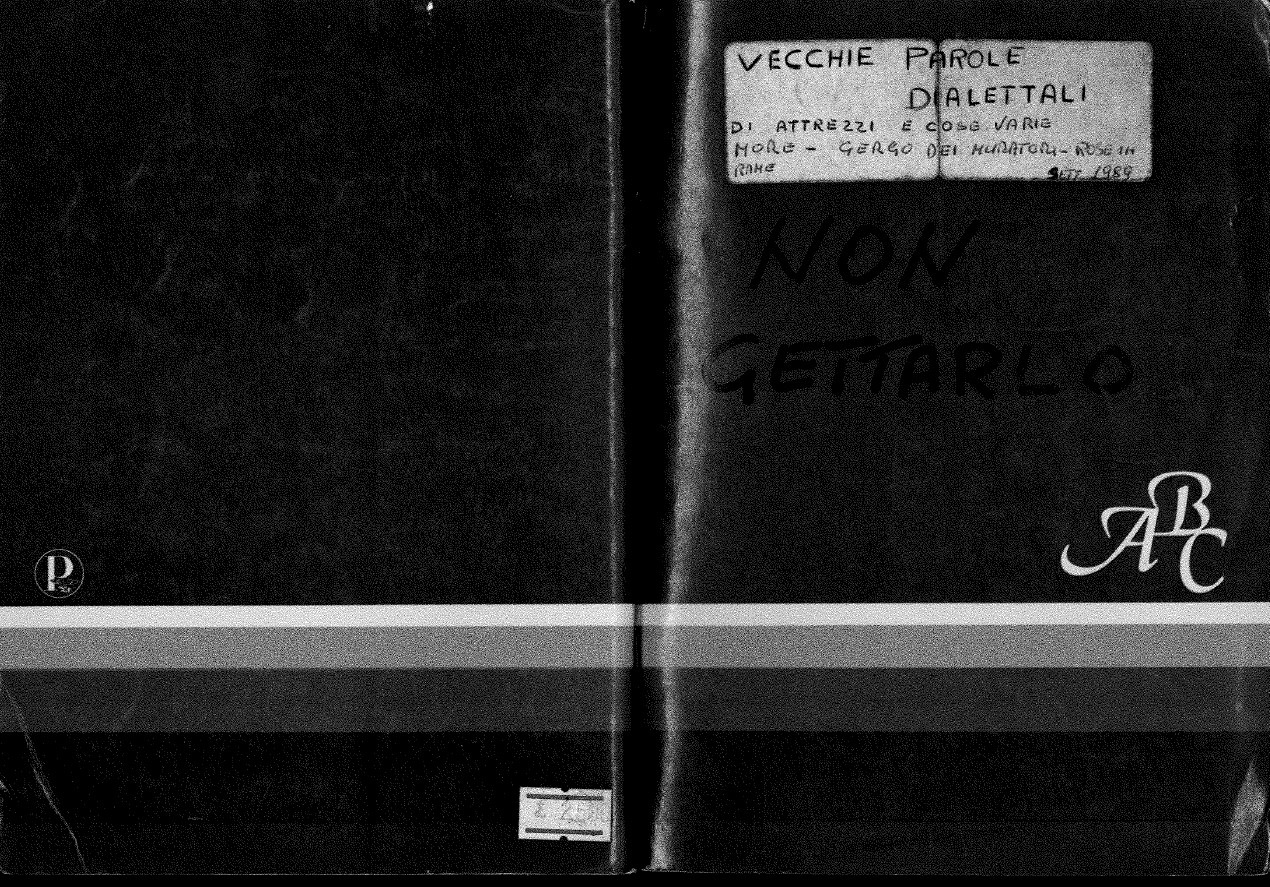 VECCHIE PAROLE
DIALETTALI
DI ATTREZZI E COSE VARIE
MORE - GERGO DEI MURATORI - ROSE IN
RAME
SETT 1989
NON
GETTARLO
ABC
P
£ 25